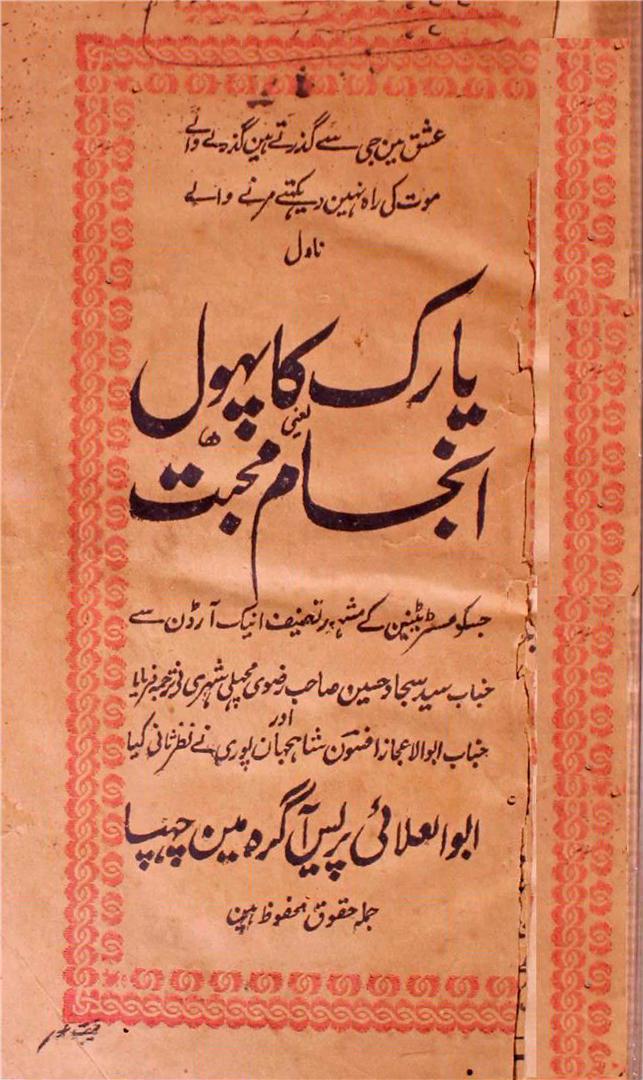 عشق مین جی سے گذرتے ہین گذرنے والے
موت کی راہ نہین دیکھتے مرنے والے
ناول
پارک کا پھول
یعنی
انجام محبت
جسکو مسٹر ٹینیسن کے مشہور تصنیف اینک آرڈن سے
جناب سید سجاد حسین صاحب رضوی مچھلی شہری نے ترجمہ فرمایا
اور
جناب ابوالاعجاز افسون شاہجہان پوری نے نظر ثانی کیا
ابوالعلائی پریس آگرہ مین چھپا
جملہ حقوق محفوظ ہین
قیمت